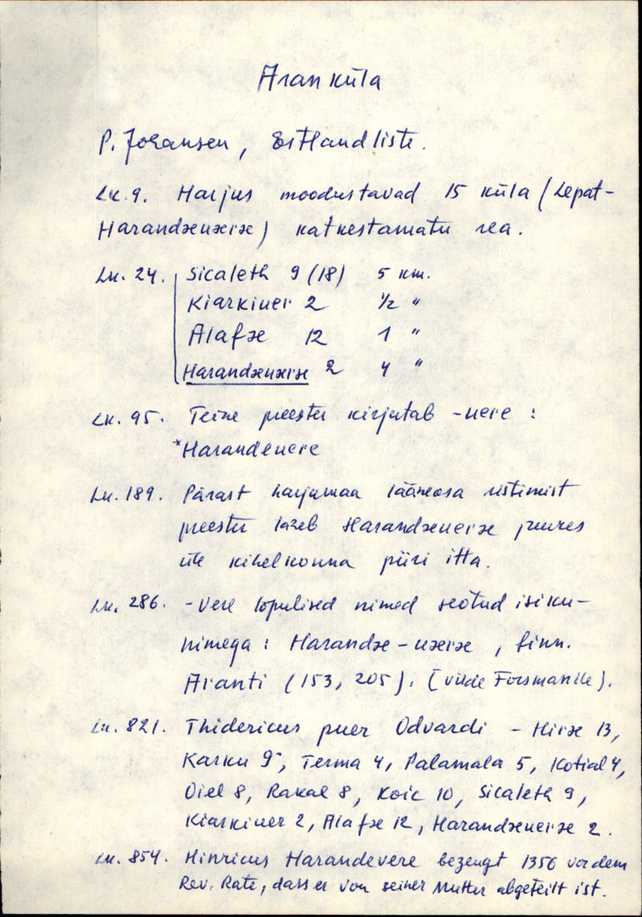 Aran küla
P. Johansen, Estlandliste.
Lk. 9. Harjus moodustavad 15 küla (Lepat-
Harandæuæræ) katkestamatu rea.
Lk. 24. Sicaleth 9 (18) 5 km.
Kiarkiuer 2 ½ "
Alafæ 12 1 "
Harandæuæræ 2 4 "
Lk. 95. Teine preester kirjutab -uere :
*Harandeuere
Lk. 189. Pärast harjumaa lääneosa ristimist
preester läheb Harandæueræ juures
üle kihelkonna piiri itta.
Lk. 286. -vere lopulised nimed seotud isiku-
nimega : Harandæ-uæræ, finn.
Aranti (153, 205). (viide Forsmanile).
Lk. 821. Thidericus puer Odvardi - Hiræ 13,
Karku 9, Terma 4, Palamala 5, Kotial 4,
Oiel 8, Rakal 8, Koic 10, Sicaleth 9,
Kiarkiuer 2, Alafæ 12, Harandæueræ 2.
Lk. 854. Hinricus Harandevere bezeugt 1356 vor dem
Rev. Rate, dass er von seiner Mutter abgeteilt ist.